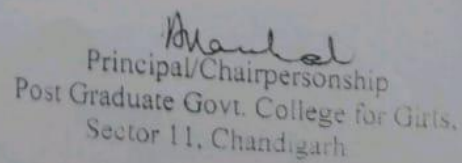 Principal/Chairpersonship
Post Graduate Govt. College for Girls,
Sector 11, Chandigarh